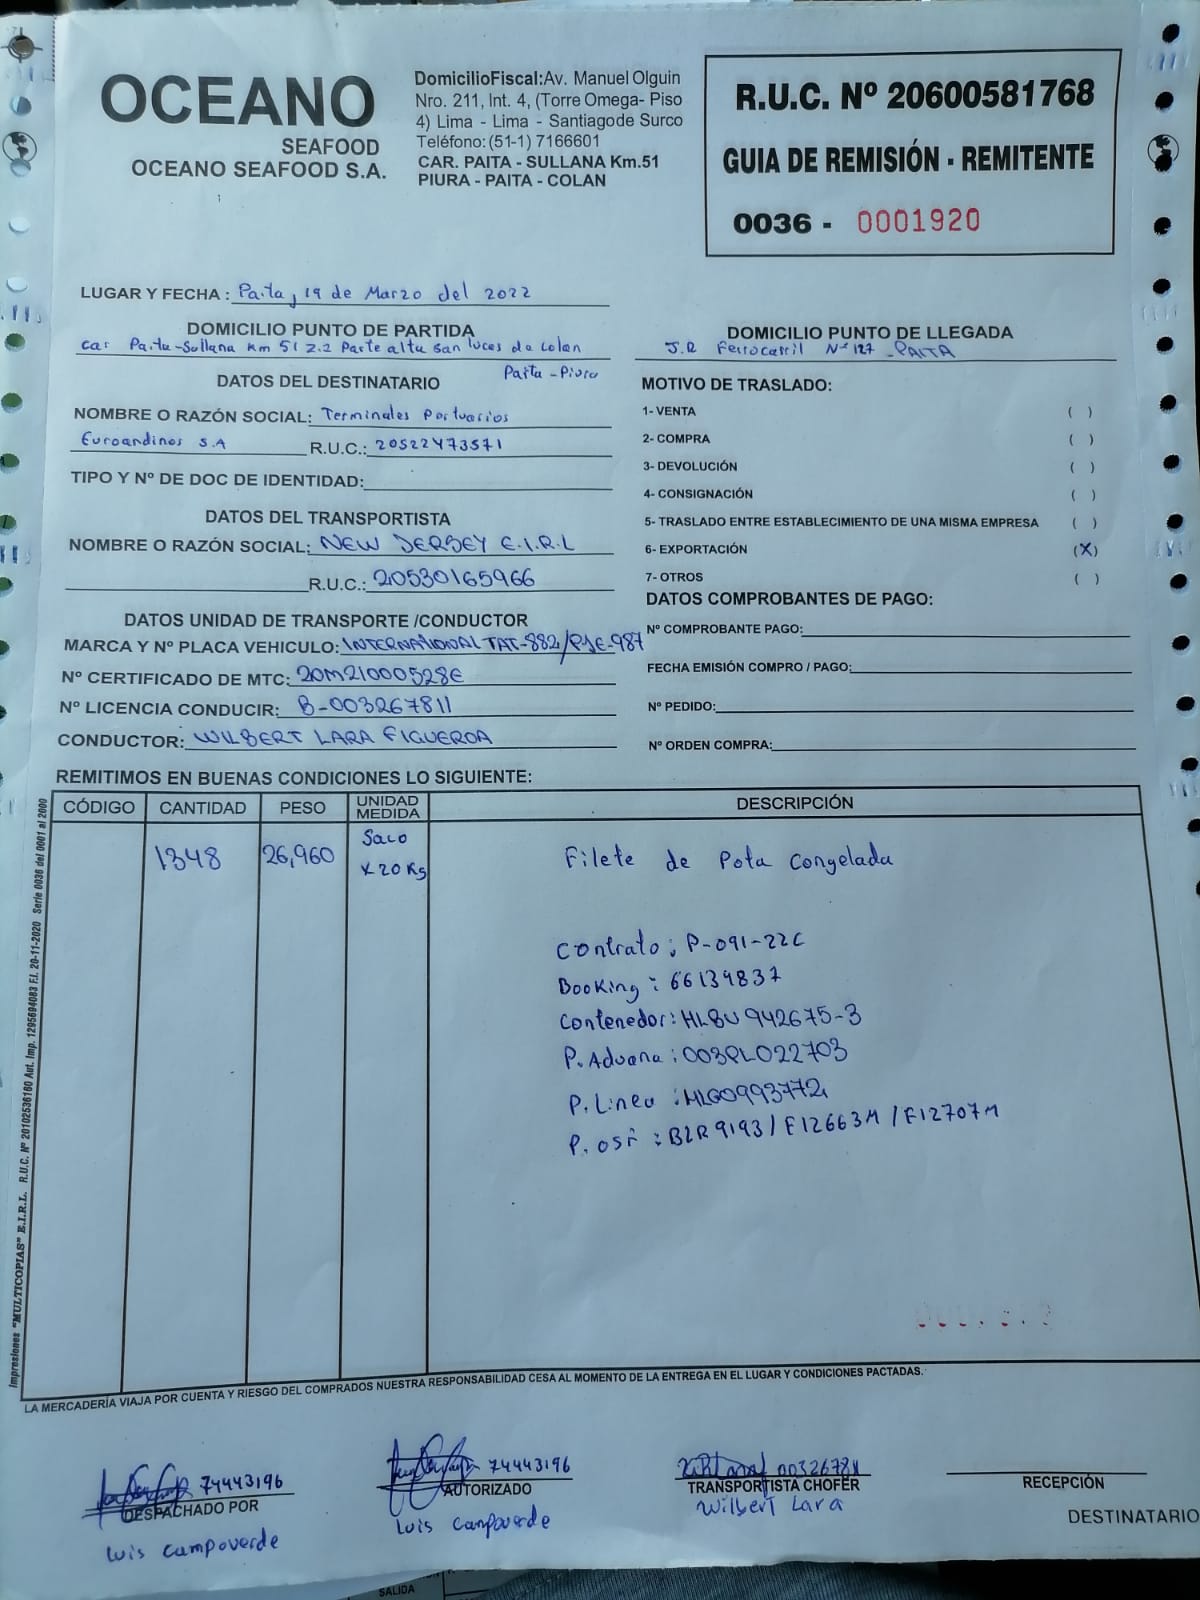 OCEANO
SEAFOOD
OCEANO SEAFOOD S.A.
DomicilioFiscal:Av. Manuel Olguin
Nro. 211, Int. 4, (Torre Omega- Piso
4) Lima - Lima - Santiago de Surco
Teléfono: (51-1) 7166601
CAR. PAITA - SULLANA Km.51
PIURA - PAITA - COLAN
R.U.C. Nº 20600581768
GUIA DE REMISIÓN - REMITENTE
0036 - 0001920
LUGAR Y FECHA : Paita, 19 de Marzo del 2022
DOMICILIO PUNTO DE PARTIDA
car Paita-Sullana Km 51 Z.2 Parte alta San Luces de Colan
Paita - Piura
DOMICILIO PUNTO DE LLEGADA
J.R Ferrocarril Nº 127 - PAITA
DATOS DEL DESTINATARIO
NOMBRE O RAZÓN SOCIAL: Terminales Portuarios
Euroandinos S.A R.U.C.: 20522473571
TIPO Y Nº DE DOC DE IDENTIDAD:
DATOS DEL TRANSPORTISTA
NOMBRE O RAZÓN SOCIAL: NEW JERSEY E.I.R.L
R.U.C.: 20530165966
DATOS UNIDAD DE TRANSPORTE /CONDUCTOR
MARCA Y Nº PLACA VEHICULO: INTERNATIONAL TAT-882/PJE-987
Nº CERTIFICADO DE MTC: 20M21000528E
Nº LICENCIA CONDUCIR: B-003267811
CONDUCTOR: WILBERT LARA FIGUEROA
MOTIVO DE TRASLADO:
1- VENTA ( )
2- COMPRA ( )
3- DEVOLUCIÓN ( )
4- CONSIGNACIÓN ( )
5- TRASLADO ENTRE ESTABLECIMIENTO DE UNA MISMA EMPRESA ( )
6- EXPORTACIÓN (X)
7- OTROS ( )
DATOS COMPROBANTES DE PAGO:
Nº COMPROBANTE PAGO:
FECHA EMISIÓN COMPRO / PAGO:
Nº PEDIDO:
Nº ORDEN COMPRA:
REMITIMOS EN BUENAS CONDICIONES LO SIGUIENTE:
CÓDIGO CANTIDAD PESO UNIDAD MEDIDA DESCRIPCIÓN
1348 26,960 Saco x 20 Kg Filete de Pota Congelada
Contrato: P-091-22C
Booking: 66134837
Contenedor: HLBU 942675-3
P. Aduana: 003PL022703
P. Linea: HLG0993772
P. osf: BZR9193/F12663M/F12707M
Impresiones "MULTICOPIAS" E.I.R.L. R.U.C. Nº 20102536160 Aut. Imp. 1295694083 F.I. 20-11-2020 Serie 0036 del 0001 al 2000
LA MERCADERÍA VIAJA POR CUENTA Y RIESGO DEL COMPRADOS NUESTRA RESPONSABILIDAD CESA AL MOMENTO DE LA ENTREGA EN EL LUGAR Y CONDICIONES PACTADAS.
74443196
DESPACHADO POR
Luis Campoverde
74443196
AUTORIZADO
Luis Campoverde
TRANSPORTISTA CHOFER
Wilbert Lara
RECEPCIÓN
DESTINATARIO
SALIDA